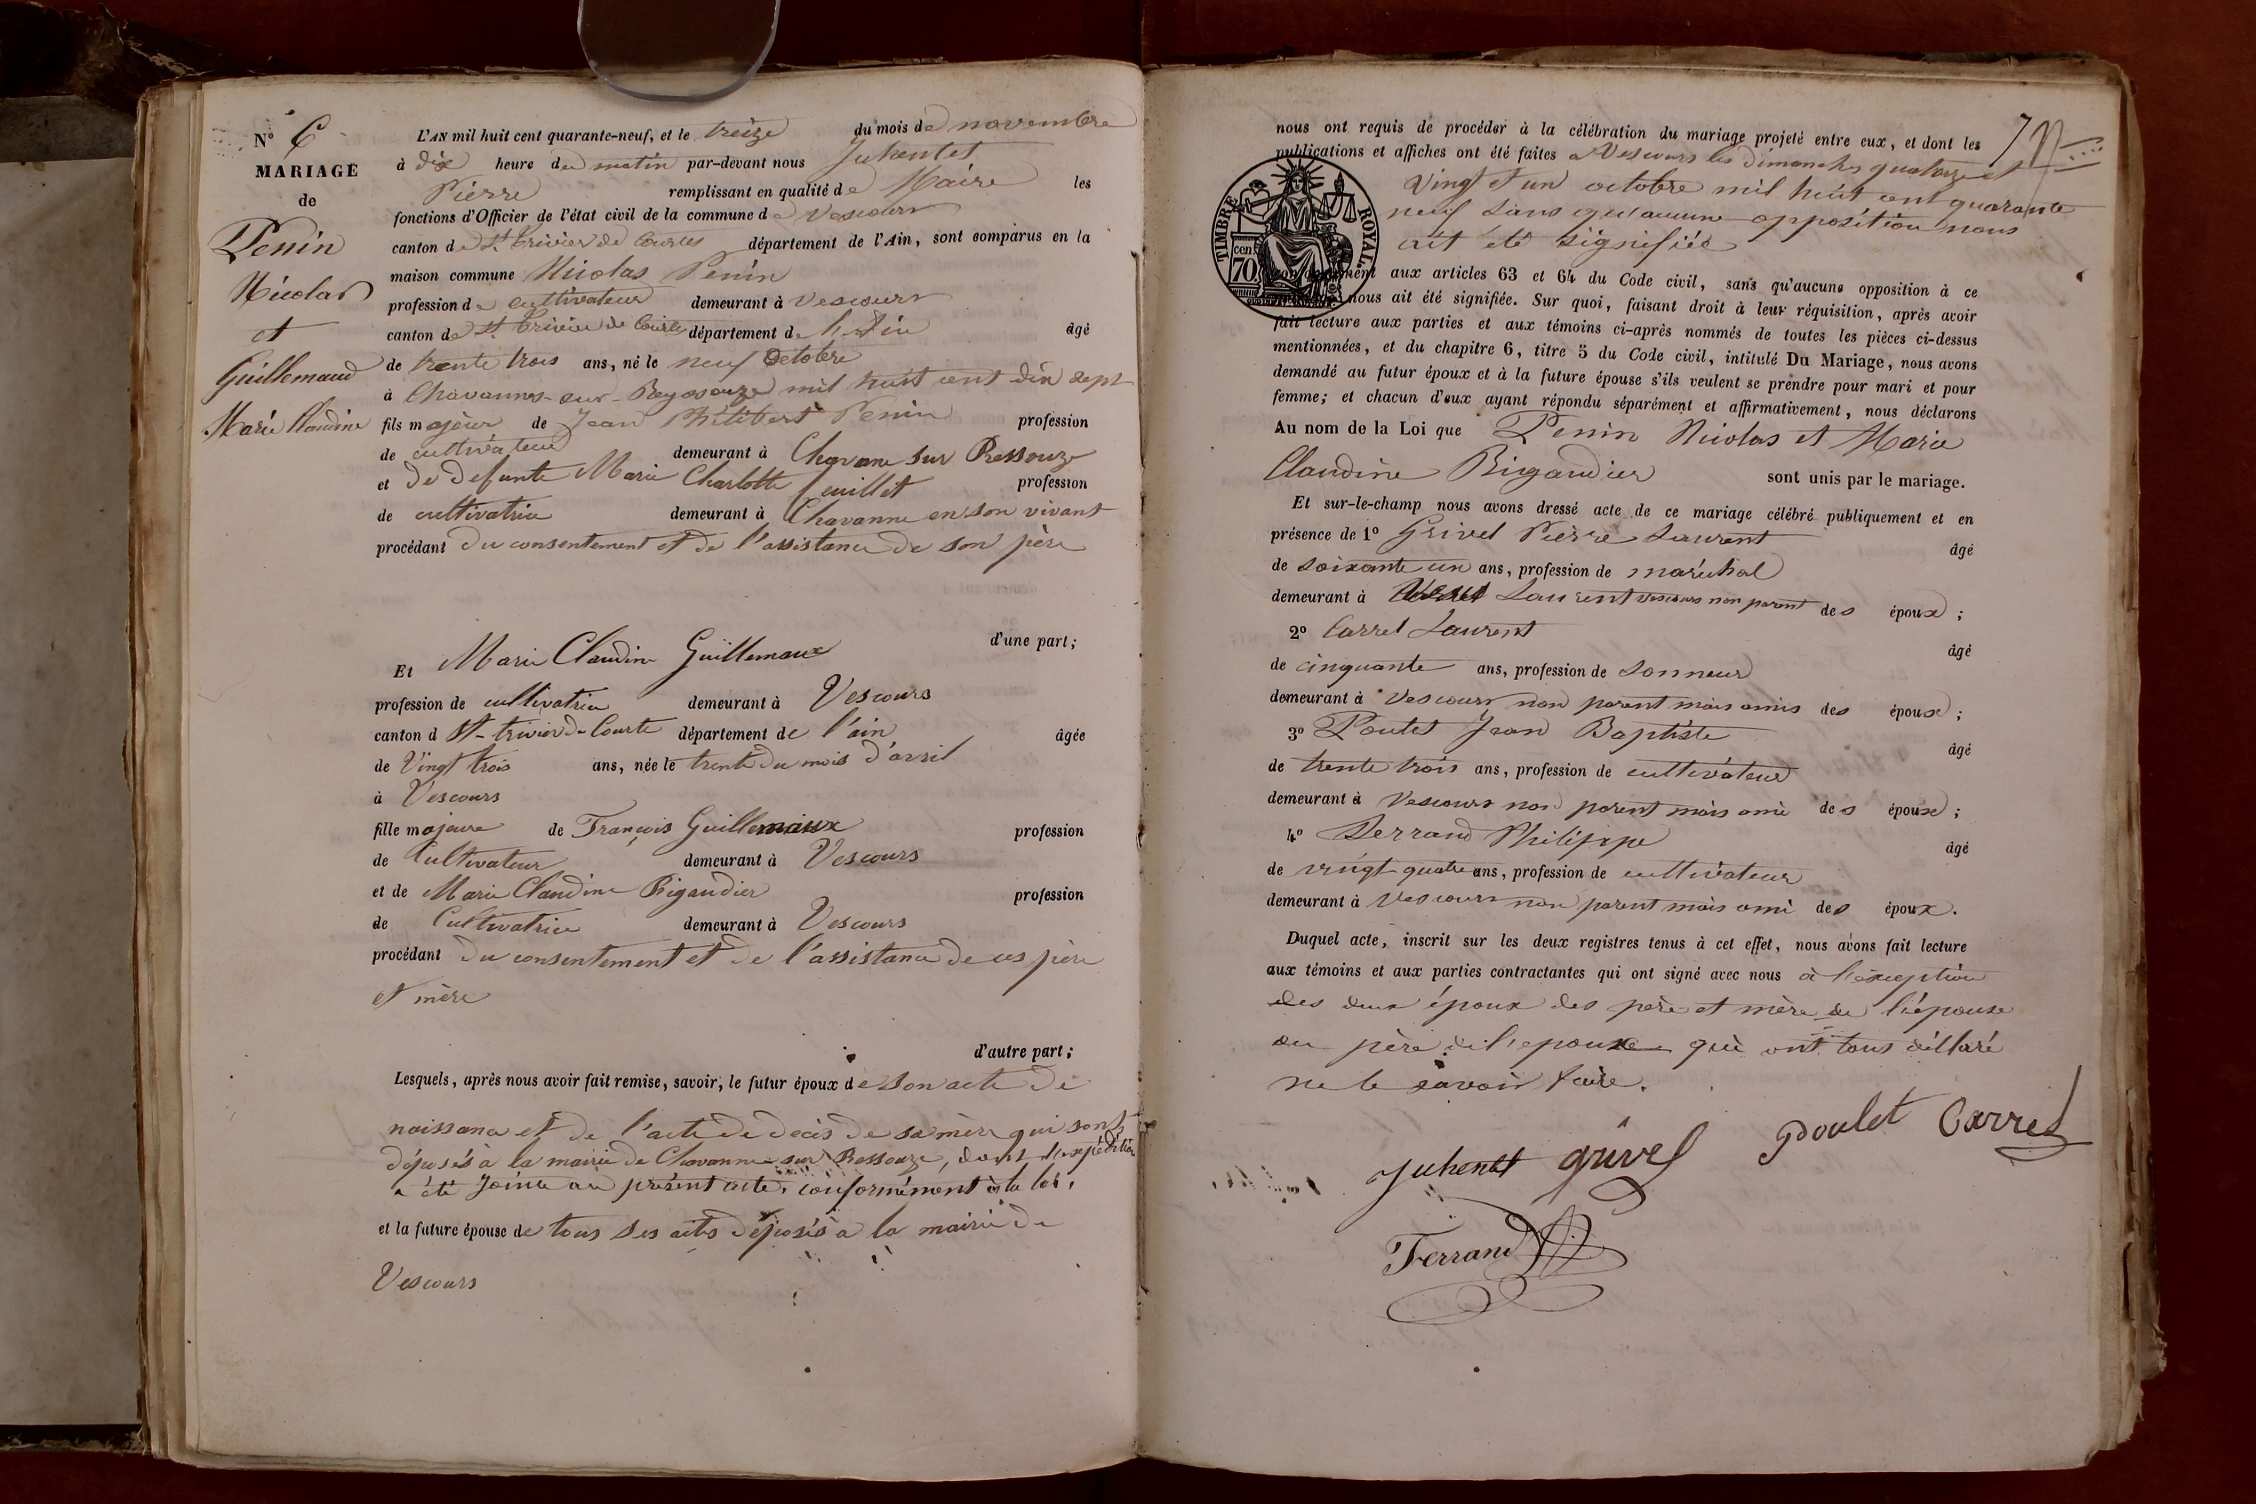 N° 6
MARIAGE
de
Penin
Nicolas
et
Guillemaud
Marie Claudine
L'AN mil huit cent quarante-neuf, et le treize du mois de novembre
à dix heure du matin par-devant nous Juhentet
Pierre remplissant en qualité de Maire les
fonctions d'Officier de l'état civil de la commune de Vescours
canton de St Trivier de Courtes département de l'Ain, sont comparus en la
maison commune Nicolas Penin
profession de cultivateur demeurant à Vescours
canton de St Trivier de Courtes département de l'ain âgé
de trente trois ans, né le neuf Octobre
à Chavannes-sur-Reyssouze mil huit cent dix sept
fils majeur de Jean Philibert Penin profession
de cultivateur demeurant à Chavanne sur Ressouze
et de defunte Marie Charlotte feuillet profession
de cultivatrice demeurant à Chavanne en son vivant
procédant du consentement et de l'assistance de son père
d'une part;
Et Marie Claudine Guillemaux
profession de cultivatrice demeurant à Vescours
canton d St-trivier de Courte département de l'ain âgée
de Vingt trois ans, née le trente du mois d'avril
à Vescours
fille majeure de François Guillemaux profession
de Cultivateur demeurant à Vescours
et de Marie Claudine Rigaudier profession
de Cultivatrice demeurant à Vescours
procédant du consentement et de l'assistance de ces père
et mère
d'autre part;
Lesquels, après nous avoir fait remise, savoir, le futur époux de son acte de
naissance et de l'acte de décès de sa mère qui sont
déposés à la mairie de Chavanne-sur Ressouze, dont l'expédition
a été Jointe au présent acte, conformément à la loi,
et la future épouse de tous ses actes déposés à la mairie de
Vescours
nous ont requis de procéder à la célébration du mariage projeté entre eux, et dont les
publications et affiches ont été faites a Vescours les dimanches quatorze et
vingt et un octobre mil huit cent quarante
neuf sans qu'aucune opposition nous
ait été signifiée
TIMBRE ROYAL.
70 cen.
conformément aux articles 63 et 64 du Code civil, sans qu'aucune opposition à ce
nous ait été signifiée. Sur quoi, faisant droit à leur réquisition, après avoir
fait lecture aux parties et aux témoins ci-après nommés de toutes les pièces ci-dessus
mentionnées, et du chapitre 6, titre 5 du Code civil, intitulé Du Mariage, nous avons
demandé au futur époux et à la future épouse s'ils veulent se prendre pour mari et pour
femme; et chacun d'eux ayant répondu séparément et affirmativement, nous déclarons
Au nom de la Loi que Penin Nicolas et Marie
Claudine Rigaudier sont unis par le mariage.
Et sur-le-champ nous avons dressé acte de ce mariage célébré publiquement et en
présence de 1° Grivel Pierre Laurent âgé
de soixante un ans, profession de maréchal
demeurant à Laurent vescours non parent des époux;
2° Carrel Laurent âgé
de cinquante ans, profession de sonneur
demeurant à Vescours non parent mais amis des époux;
3° Poulet Jean Baptiste âgé
de trente trois ans, profession de cultivateur
demeurant à Vescours non parent mais ami des époux;
4° Ferrand Philippe âgé
de vingt quatre ans, profession de cultivateur
demeurant à Vescours non parent mais ami des époux.
Duquel acte, inscrit sur les deux registres tenus à cet effet, nous avons fait lecture
aux témoins et aux parties contractantes qui ont signé avec nous à l'exception
des deux époux des père et mère de l'épouse
du père de l'epoux qui ont tous déclaré
ne le savoir faire.
Juhentet Grivel Poulet Carrel
Ferrand